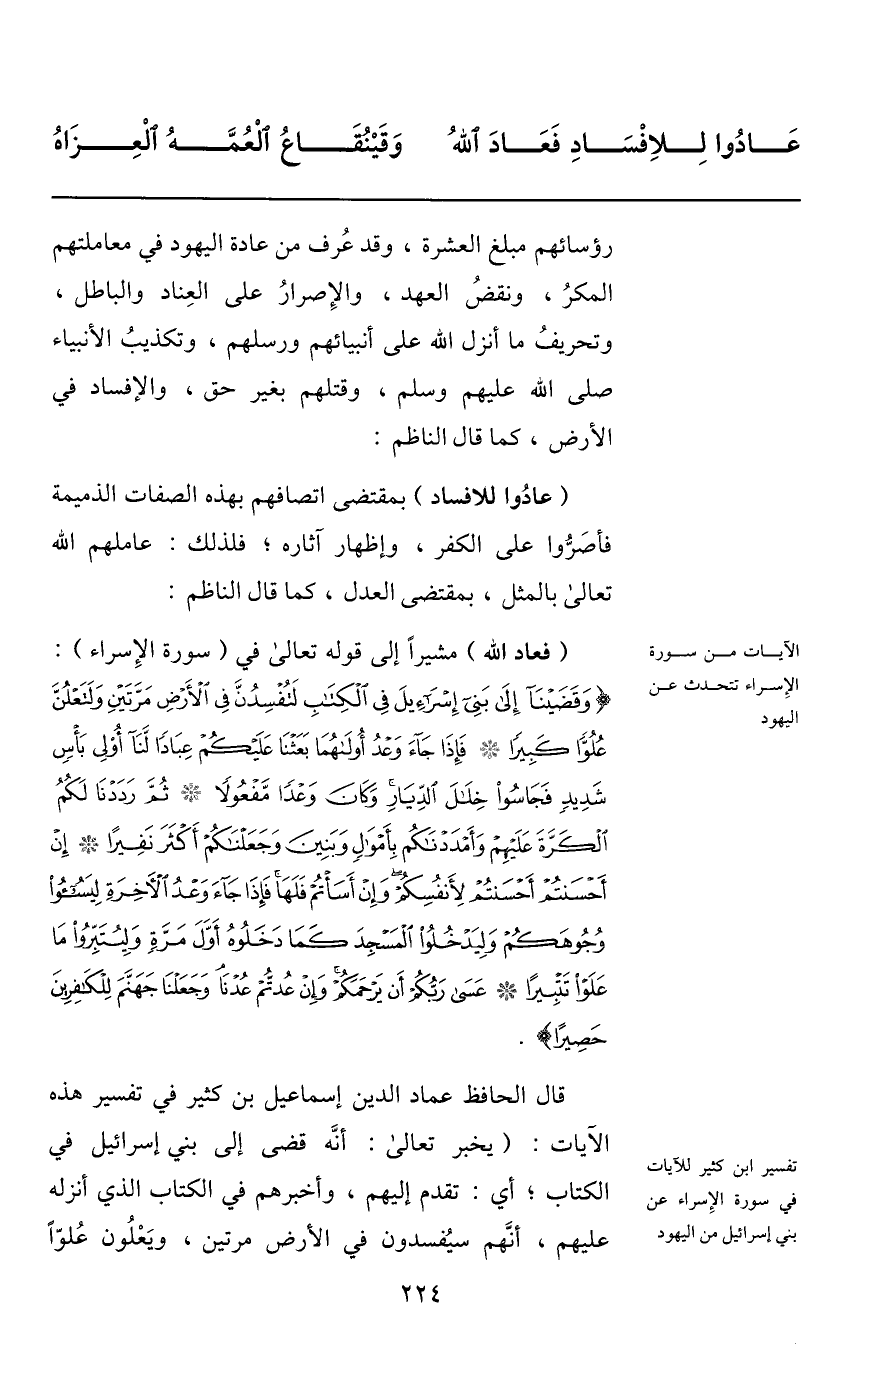 عَادُوا لِلاِفْسَادِ فَعَادَ ٱللهُ وَقَيْنُقَاعُ ٱلْعُمَّهُ ٱلْعِزَاهُ
رؤسائهم مبلغ العشرة ، وقد عُرف من عادة اليهود في معاملتهم
المكرُ ، ونقضُ العهد ، والإصرارُ على العِناد والباطل ،
وتحريفُ ما أنزل الله على أنبيائهم ورسلهم ، وتكذيبُ الأنبياء
صلى الله عليهم وسلم ، وقتلهم بغير حق ، والإفساد في
الأرض ، كما قال الناظم :
( عادُوا للافساد ) بمقتضى اتصافهم بهذه الصفات الذميمة
فأصَرُّوا على الكفر ، وإظهار آثاره ؛ فلذلك : عاملهم الله
تعالىٰ بالمثل ، بمقتضى العدل ، كما قال الناظم :
( فعاد الله ) مشيراً إلى قوله تعالىٰ في ( سورة الإسراء ) :
﴿ وَقَضَيْنَآ إِلَىٰ بَنِىٓ إِسْرَٰٓءِيلَ فِى ٱلْكِتَٰبِ لَتُفْسِدُنَّ فِى ٱلْأَرْضِ مَرَّتَيْنِ وَلَتَعْلُنَّ
عُلُوًّا كَبِيرًا * فَإِذَا جَآءَ وَعْدُ أُولَىٰهُمَا بَعَثْنَا عَلَيْكُمْ عِبَادًا لَّنَآ أُو۟لِى بَأْسٍ
شَدِيدٍ فَجَاسُوا۟ خِلَٰلَ ٱلدِّيَارِ ۚ وَكَانَ وَعْدًا مَّفْعُولًا * ثُمَّ رَدَدْنَا لَكُمُ
ٱلْكَرَّةَ عَلَيْهِمْ وَأَمْدَدْنَٰكُم بِأَمْوَٰلٍ وَبَنِينَ وَجَعَلْنَٰكُمْ أَكْثَرَ نَفِيرًا * إِنْ
أَحْسَنتُمْ أَحْسَنتُمْ لِأَنفُسِكُمْ ۖ وَإِنْ أَسَأْتُمْ فَلَهَا ۚ فَإِذَا جَآءَ وَعْدُ ٱلْأَخِرَةِ لِيَسُۥٓـُٔوا۟
وُجُوهَكُمْ وَلِيَدْخُلُوا۟ ٱلْمَسْجِدَ كَمَا دَخَلُوهُ أَوَّلَ مَرَّةٍ وَلِيُتَبِّرُوا۟ مَا
عَلَوْا۟ تَتْبِيرًا * عَسَىٰ رَبُّكُمْ أَن يَرْحَمَكُمْ ۚ وَإِنْ عُدتُّمْ عُدْنَا ۘ وَجَعَلْنَا جَهَنَّمَ لِلْكَٰفِرِينَ
حَصِيرًا ﴾ .
الآيات من سورة
الإسراء تتحدث عن
اليهود
قال الحافظ عماد الدين إسماعيل بن كثير في تفسير هذه
الآيات : ( يخبر تعالىٰ : أنَّه قضى إلى بني إسرائيل في
الكتاب ؛ أي : تقدم إليهم ، وأخبرهم في الكتاب الذي أنزله
عليهم ، أنَّهم سيُفسدون في الأرض مرتين ، ويَعْلُون عُلوّاً
تفسير ابن كثير للآيات
في سورة الإسراء عن
بني إسرائيل من اليهود
٢٢٤